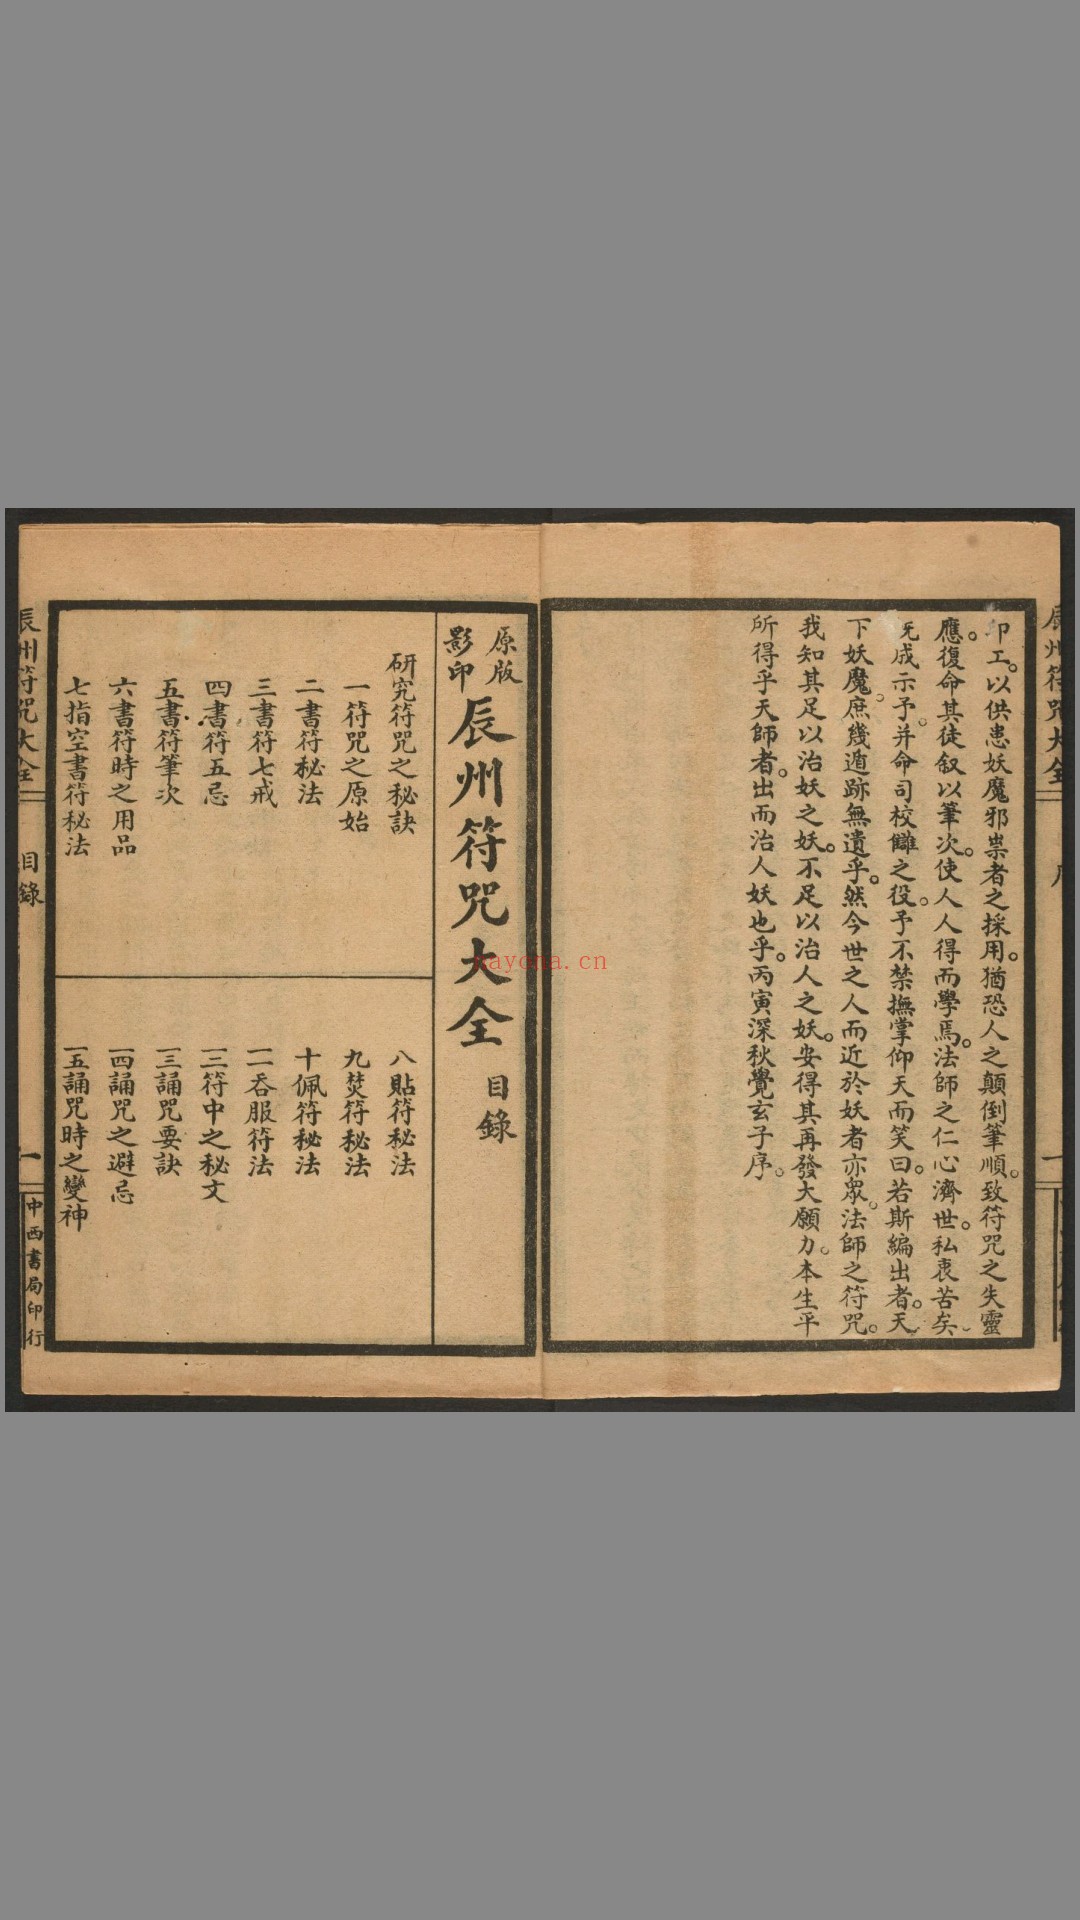 印工。以供患妖魔邪祟者之採用。猶恐人之顛倒筆順。致符咒之失靈
應。復命其徒叙以筆次。使人人得而學焉。法師之仁心濟世。私衷苦矣。
既成示予。并命司校讎之役。予不禁撫掌仰天而笑曰。若斯編出者。天
下妖魔。庶幾遁跡無遺乎。然今世之人而近於妖者亦眾。法師之符咒。
我知其足以治妖之妖。不足以治人之妖。安得其再發大願力。本生平
所得乎天師者。出而治人妖也乎。丙寅深秋覺玄子序。
辰州符咒大全
一
原版
影印
辰州符咒大全
目錄
研究符咒之秘訣
一符咒之原始
二書符秘法
三書符七戒
四書符五忌
五書符筆次
六書符時之用品
七指空書符秘法
八貼符秘法
九焚符秘法
十佩符秘法
一一吞服符法
一二符中之秘文
一三誦咒要訣
一四誦咒之避忌
一五誦咒時之變神
辰州符咒大全
目錄
一
中西書局印行
nayona.cn